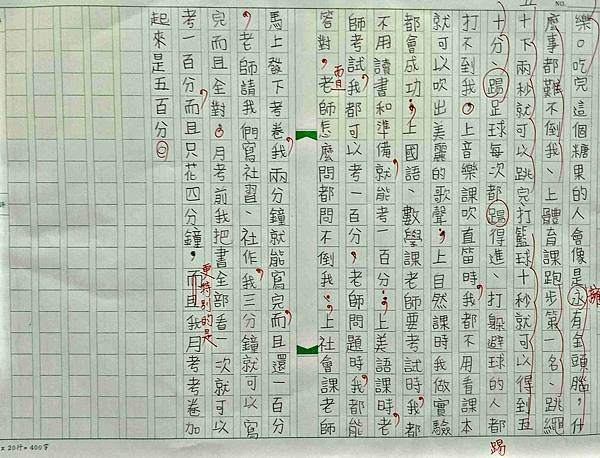 樂。吃完這個糖果的人會像是永有金頭腦,什
麼事都難不倒我、上體育課跑步第一名、跳繩
十下兩秒就可以跳完打籃球十秒就可以得到五
十分、踢足球每次都踢得進、打躲避球的人都
打不到我。上音樂課吹直笛時我都不用看課本
就可以吹出美麗的歌聲,上自然課時我做實驗
都會成功,上國語、數學課老師要考試時我都
不用讀書和準備就能考一百分,上美語課時老
師考試我都可以考一百分,老師問題時我都能
答對,老師怎麼問都問不倒我,上社會課老師
馬上發下考卷我兩分鐘就能寫完而且還一百分
,老師請我們寫社習、社作我三分鐘就可以寫
完而且全對。月考前我把書全部看一次就可以
考一百分而且只花四分鐘,而且我月考考卷加
起來是五百分。
擁
踢
更特別的是
NO.
20行=400字